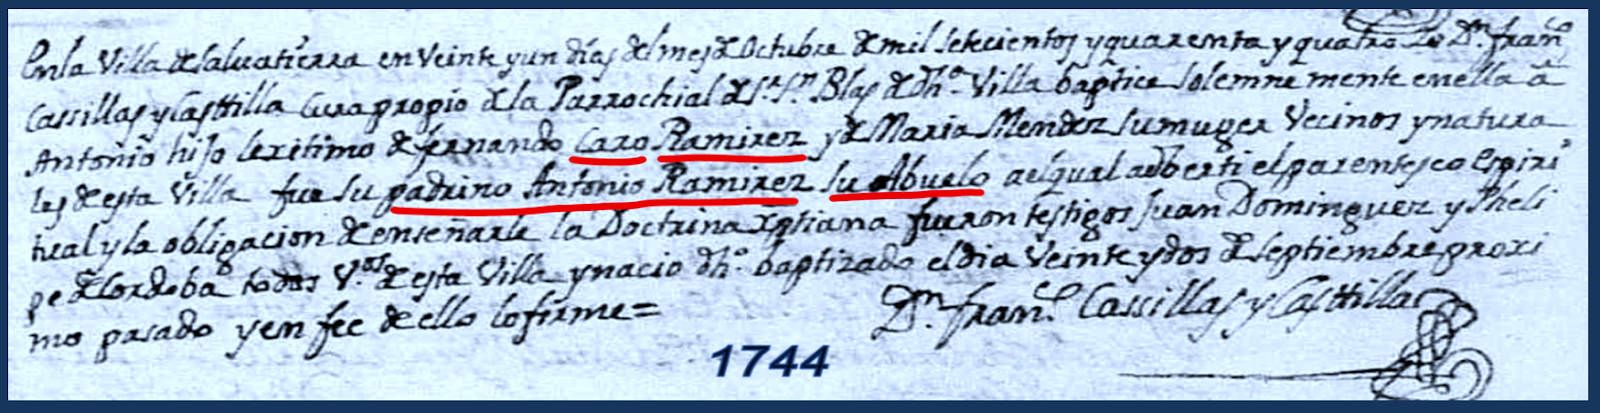 En la Villa de Salvatierra en veinte y un días del mes de Octubre de mil setecientos y quarenta y quatro Yo Dn. Franco.
Cassillas y Casttilla Cura propio de la Parrochial de Sr. Sn. Blas de dha. Villa baptice solemne mente en ella a
Antonio hijo lexitimo de fernando Caro Ramirez y de Maria Mendez su muger Vecinos y natura
les de esta Villa fue su padrino Antonio Ramirez su Abuelo a el qual adberti el parentesco Espiri
tual y la obligacion de enseñarle la Doctrina Xptiana fueron testigos Juan Dominguez y Pheli
pe de Cordoba todos Vos. de esta Villa y nacio dho. baptizado el dia Veinte y dos de septiembre proxi
mo pasado y en fee de ello lo firme =
Dn. Franco. Cassillas y Casttilla
1744